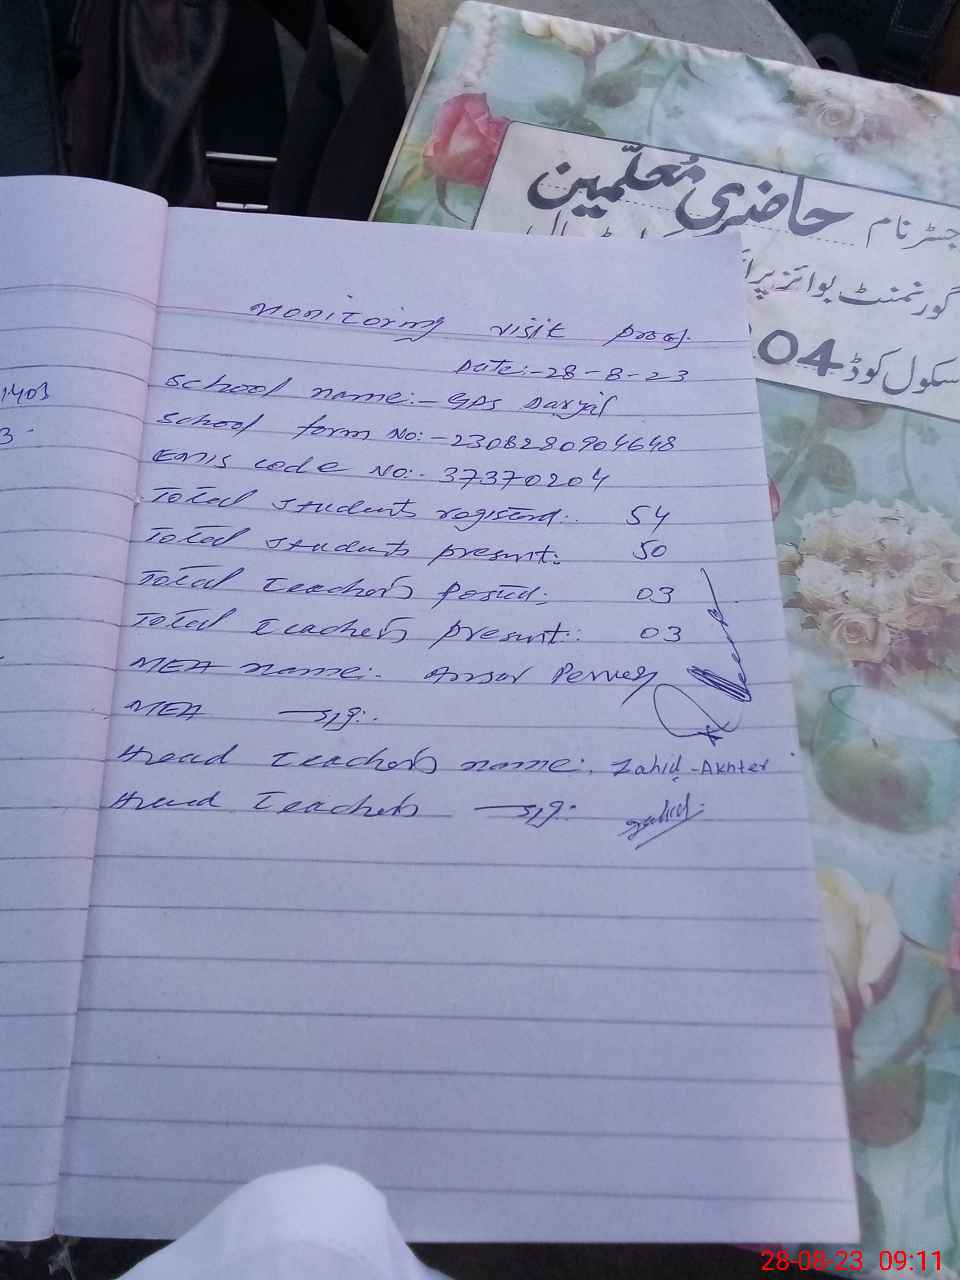 جسٹر نام حاضری معلّمین
گورنمنٹ بوائز
سکول کوڈ 204
1403
3
Monitoring visit proof.
Date:-28-8-23
School name:- GPS Daryil
School form No:-2308280904648
EMIS code No:. 37370204
Total students registerd:. 54
Total students present:. 50
Total teachers posted:. 03
Total teachers present:. 03
MEA name:. Ansar Pervez
MEA sig:.
Head teachers name:. Zahid-Akhter
Head teachers sig:
28-08-23 09:11